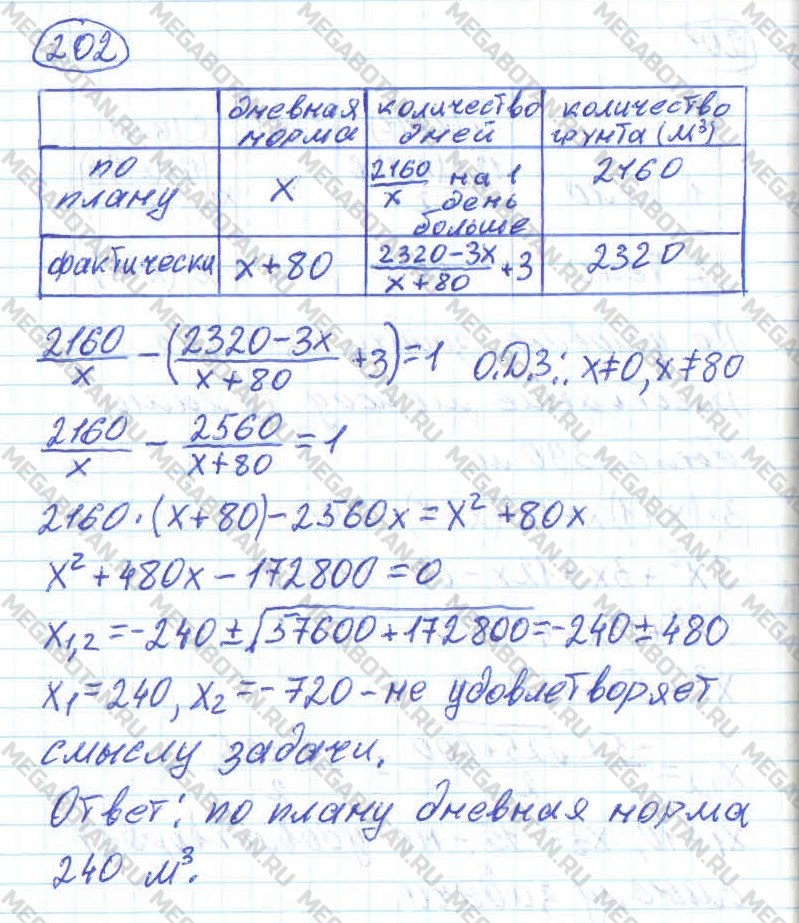 202
дневная норма | количество дней | количество грунта (м³)
по плану | x | 2160/x на 1 день больше | 2160
фактически | x+80 | (2320-3x)/(x+80) +3 | 2320
2160/x - ((2320-3x)/(x+80) +3)=1 О.Д.З.: x≠0, x≠80
2160/x - 2560/(x+80) = 1
2160·(x+80)-2560x=x²+80x
x²+480x-172800=0
x₁,₂=-240±√(57600+172800)=-240±480
x₁=240, x₂=-720-не удовлетворяет
смыслу задачи.
Ответ: по плану дневная норма
240 м³.
MEGABOTAN.RU